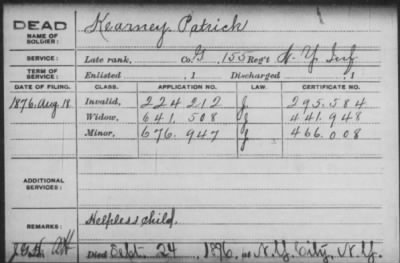 DEAD
NAME OF SOLDIER: Kearney Patrick
SERVICE: Late rank, Co. G, 155 Reg't N. Y. Inf
TERM OF SERVICE: Enlisted , 1 Discharged , 1
DATE OF FILING. CLASS. APPLICATION NO. LAW. CERTIFICATE NO.
1876, Aug. 18 Invalid, 224 212 J 295.584
Widow, 641.508 J 441.948
Minor, 676.947 J 466.008
ADDITIONAL SERVICES:
REMARKS: Helpless child.
Died Sept. 24, 1896, at N.Y. City, N.Y.